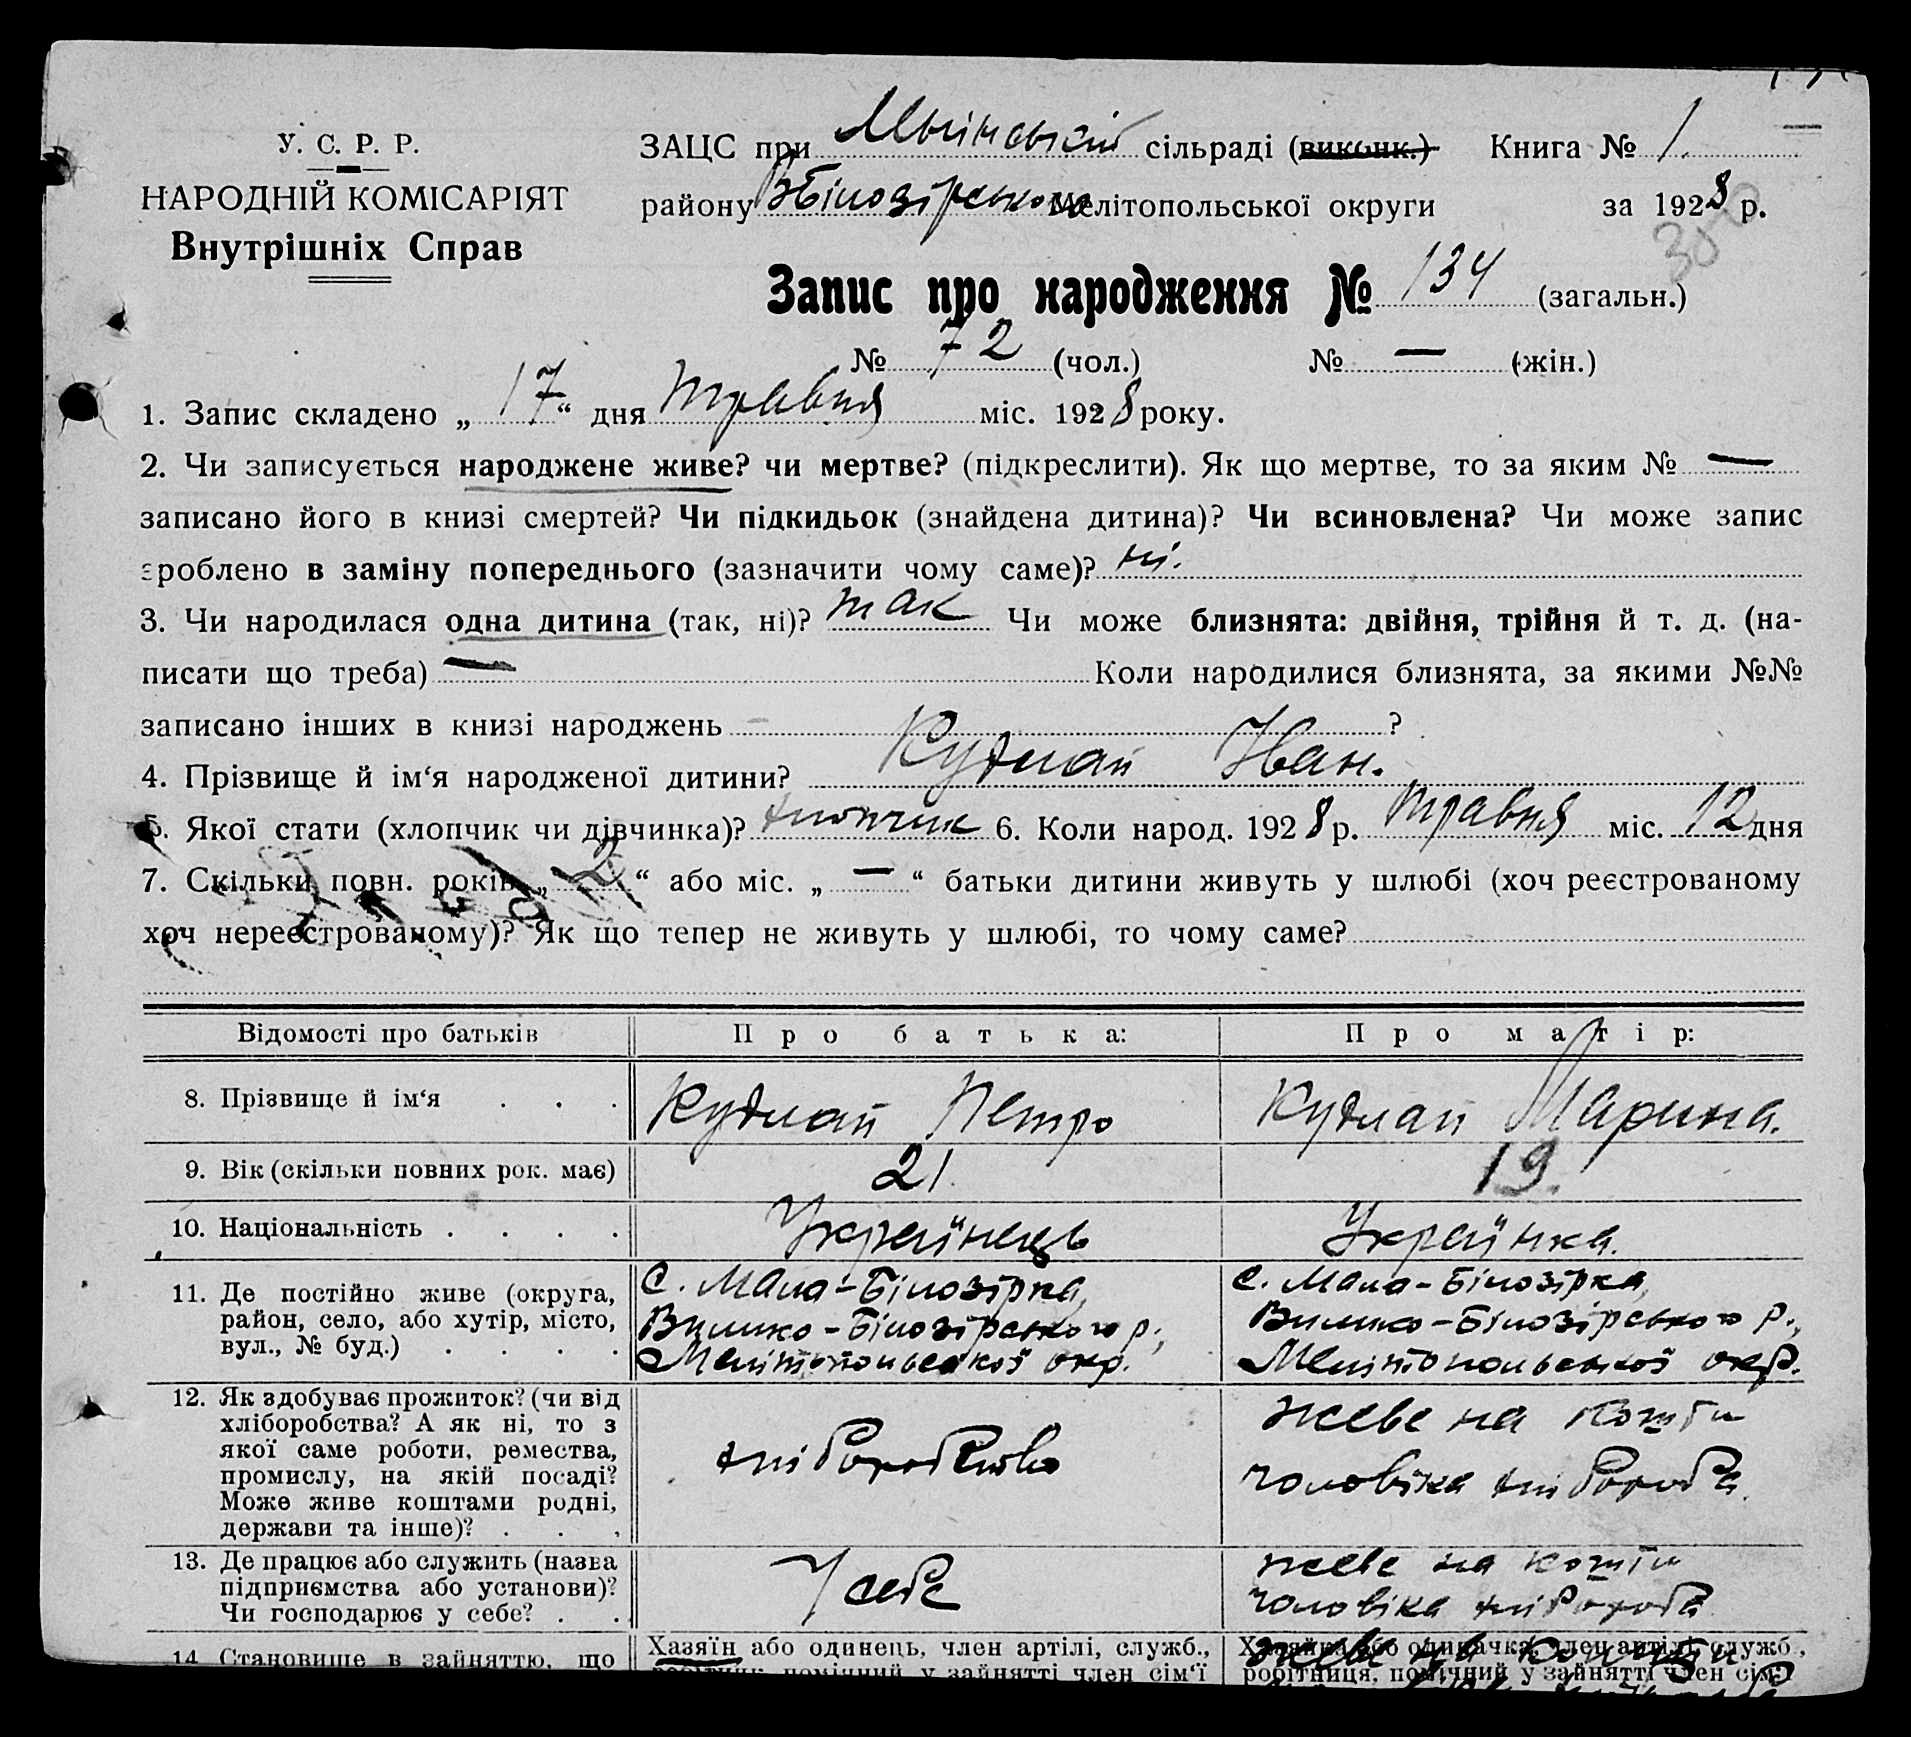 У. С. Р. Р.
НАРОДНІЙ КОМІСАРІЯТ
Внутрішніх Справ
ЗАЦС при сільраді (виконк.) Книга № 1.
району В-Білозірського Мелітопольської округи за 1928 р.
Запис про народження № 134 (загальн.)
№ 72 (чол.) № — (жін.)
1. Запис складено „ 17 “ дня травня міс. 1928 року.
2. Чи записується народжене живе? чи мертве? (підкреслити). Як що мертве, то за яким № —
записано його в книзі смертей? Чи підкидьок (знайдена дитина)? Чи всиновлена? Чи може запис
зроблено в заміну попереднього (зазначити чому саме)? ні.
3. Чи народилася одна дитина (так, ні)? так Чи може близнята: двійня, трійня й т. д. (на-
писати що треба) — Коли народилися близнята, за якими №№
записано інших в книзі народжень ?
4. Прізвище й ім‘я народженої дитини? Кудлай Іван.
5. Якої стати (хлопчик чи дівчинка)? хлопчик 6. Коли народ. 1928 р. травня міс. 12 дня
7. Скільки повн. років „ 2 “ або міс. „ — “ батьки дитини живуть у шлюбі (хоч реєстрованому
хоч нереєстрованому)? Як що тепер не живуть у шлюбі, то чому саме?
Відомості про батьків Про батька: Про матір:
8. Прізвище й ім‘я . . . Кудлай Петро Кудлай Марина.
9. Вік (скільки повних рок. має) 21 19.
10. Національність . . . . Українець Українка.
11. Де постійно живе (округа,
район, село, або хутір, місто,
вул., № буд.) . . . .
с. Мала-Білозірка,
Велико-Білозірського р.,
Мелітопольської окр.
с. Мала-Білозірка,
Велико-Білозірського р.,
Мелітопольської окр.
12. Як здобуває прожиток? (чи від
хліборобства? А як ні, то з
якої саме роботи, ремества,
промислу, на якій посаді?
Може живе коштами родні,
держави та інше)? . . .
хліборобство
живе на кошти
чоловіка хлібороба.
13. Де працює або служить (назва
підприємства або установи)?
Чи господарює у себе? . .
У себе
живе на кошти
чоловіка хлібороба
14. Становище в зайняттю, що
Хазяїн або одинець, член артілі, служб.,
робітник, помічний у зайнятті член сім‘ї
Хазяйка або одиначка, член артілі, служб.,
робітниця, помічний у зайнятті член сім.
живе на кошти